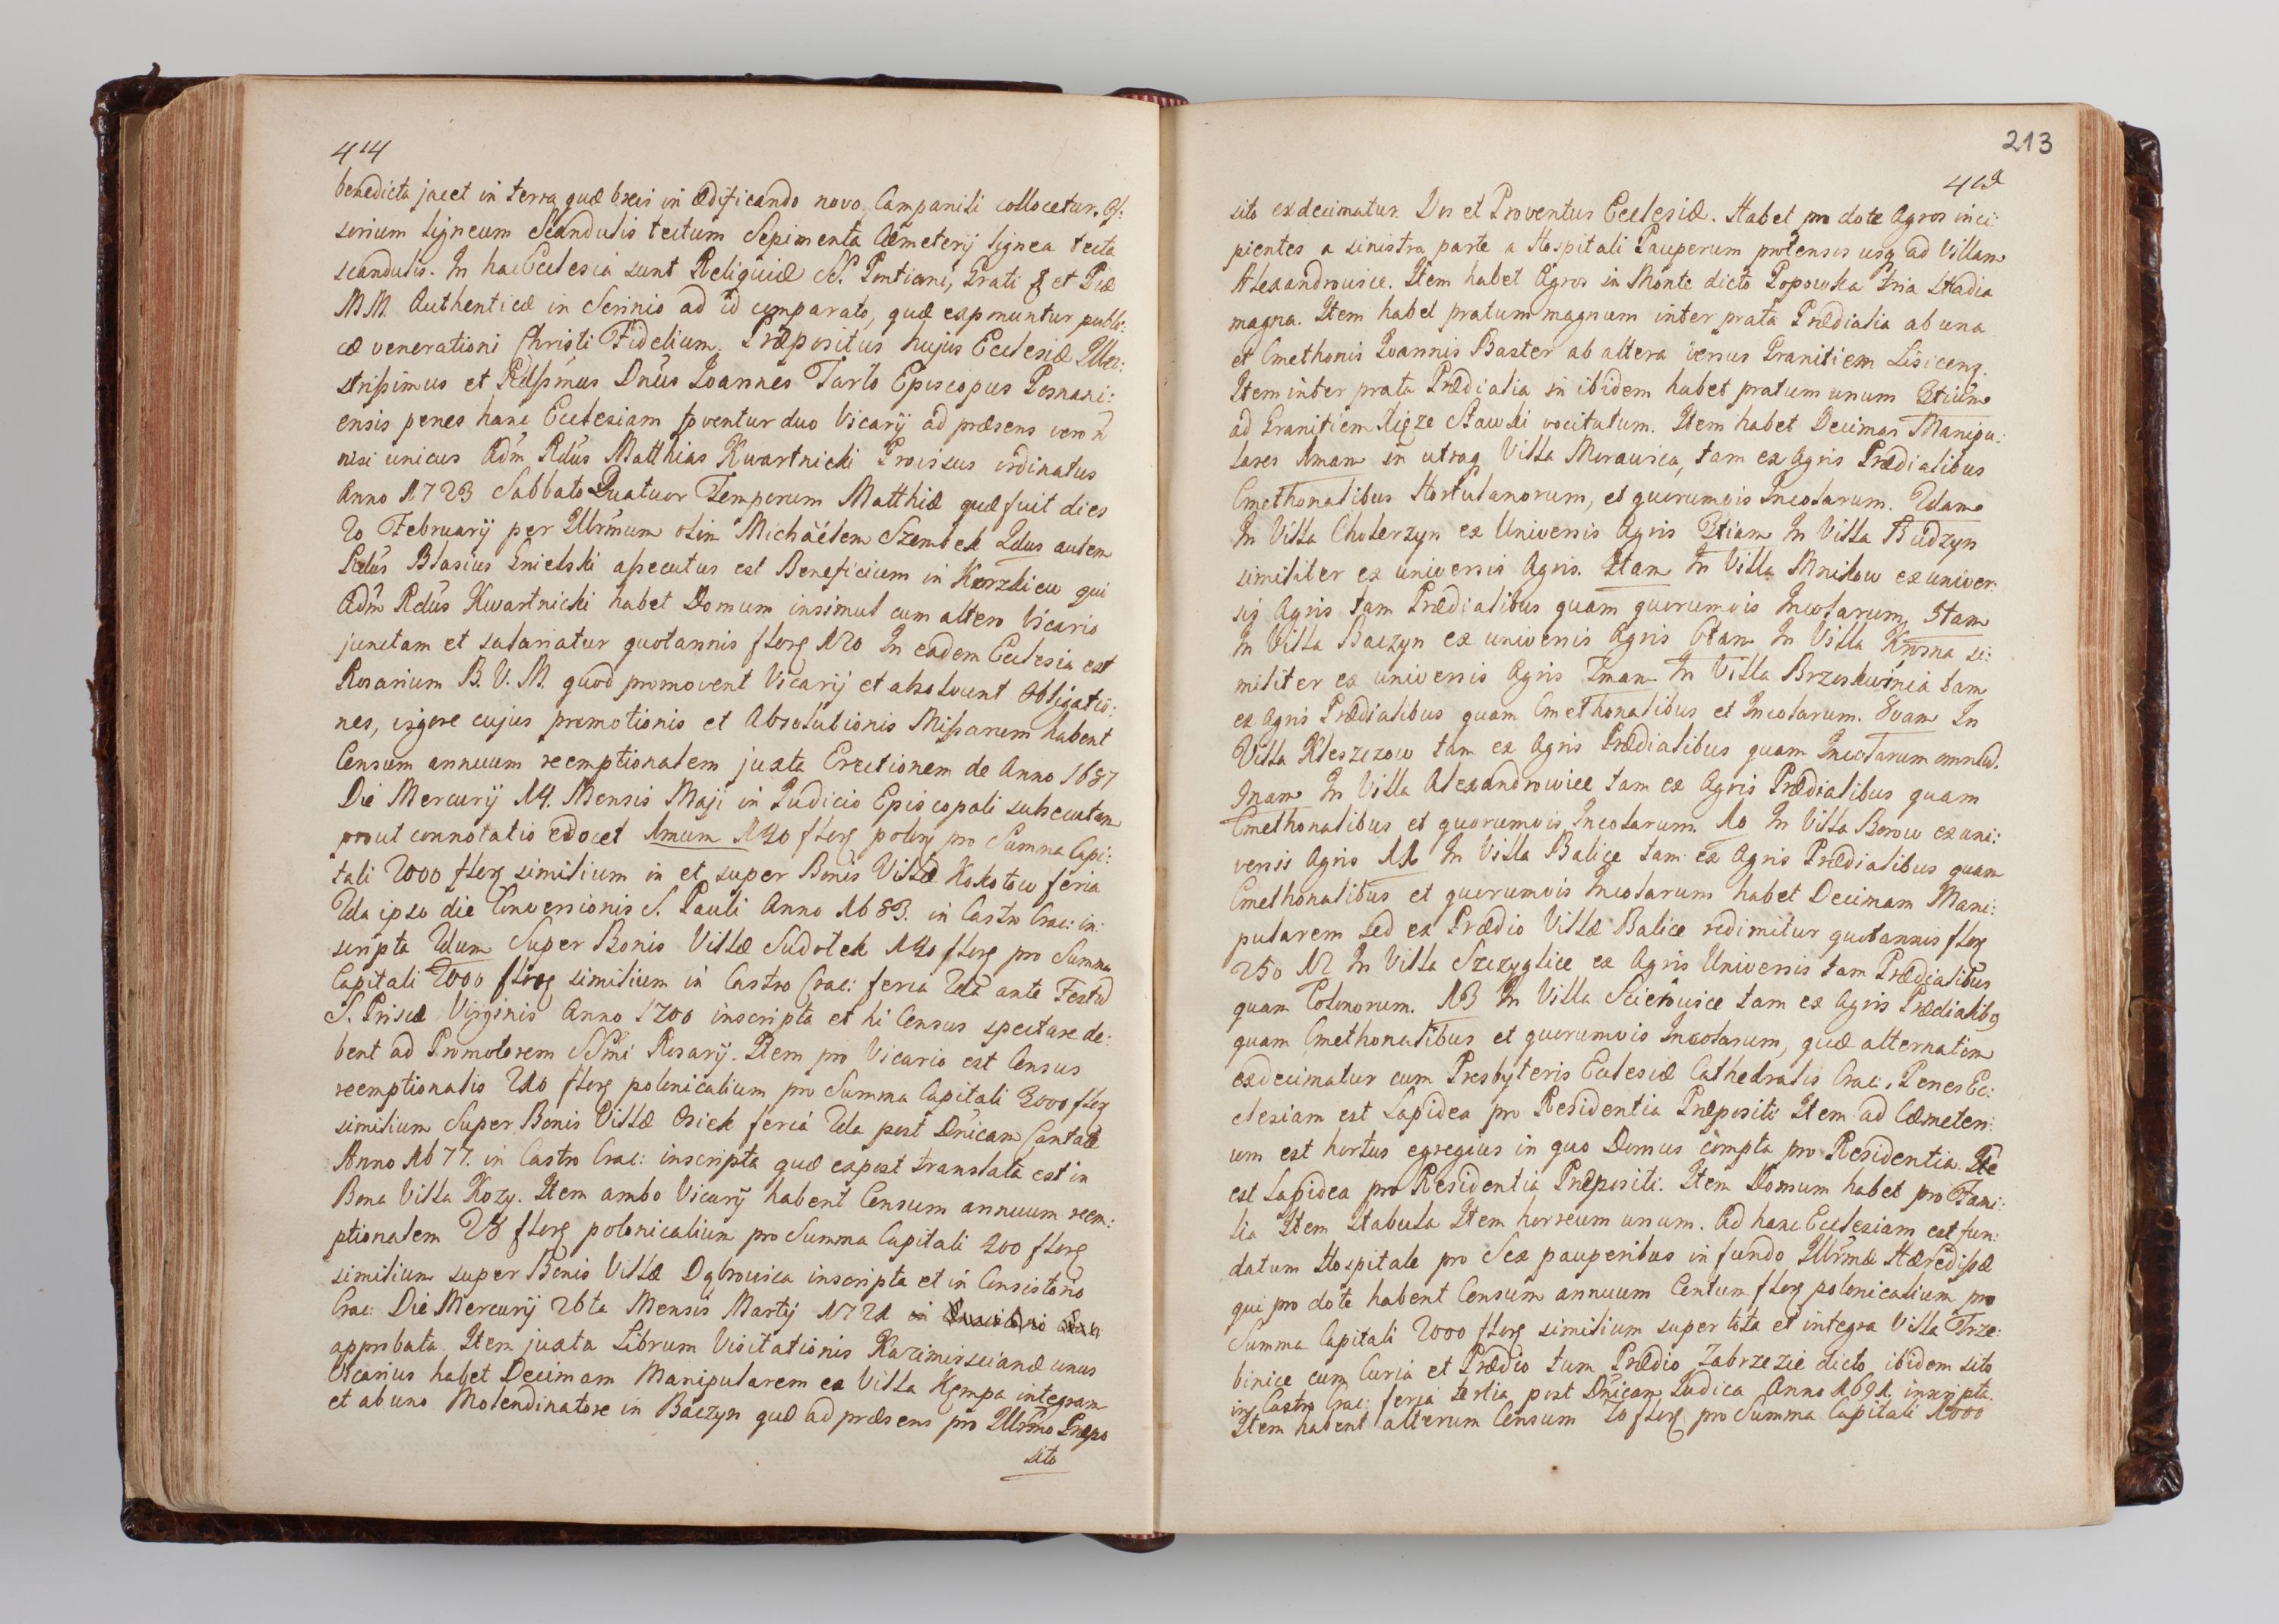 414
benedicta jacet in terra quæ brevi in ædificando novo Campanili collocetur. Os:
sorium ligneum Scandulis tectum Sepimenta Cæmeterij lignea tecta
scandulis. In hac Ecclesia sunt Reliquiæ SS. Pontiani, Grati et Piæ
MM. Authenticæ in Scrinio ad id comparato, quæ exponuntur publi:
cæ venerationi Christi Fidelium. Præpositus hujus Ecclesiæ Illu:
strissimus et Rdssmus Dnus Ioannes Tarlo Episcopus Posnani:
ensis penes hanc Ecclesiam foventur duo Vicarij ad præsens vero n
nisi unicus Adm Rdus Matthias Kwartnicki Provisus ordinatus
Anno 1723 Sabbato Quatuor Temporum Matthiæ quæ fuit dies
20 Februarij per Illrmum olim Michaëlem Szembek 2dus autem
Rdus Blasius Gnielski assecutus est Beneficium in Korzkiew qui
Adm Rdus Kwartnicki habet Domum insimul cum altero Vicario
junctam et salariatur quotannis floreg 120 In eadem Ecclesia est
Rosarium B. V. M. quod promovent Vicarij et absolvunt Obligatio:
nes, vigore cujus promotionis et Absolutionis Missarum habent
Censum annuum reemptionalem juxta Erectionem de Anno 1687
Die Mercurij 14. Mensis Maji in Iudicio Episcopali subsecutam
prout connotatio edocet 1mum 140 floreg poloreg pro Summa Capi:
tali 2000 floreg similium in et super Bonis Villæ Kokotow feria
2da ipso die Conversionis S. Pauli Anno 1683. in Castro Crac: in:
scripta 2dum Super Bonis Villæ Sudolek 140 floreg pro Summa
Capitali 2000 floreg similium in Castro Crac: feria 2da ante Festū
S. Priscæ Virginis Anno 1700 inscripta et hi Census spectare de:
bent ad Promotorem SSmi Rosarij. Item pro Vicario est Census
reemptionalis 210 floreg polonicalium pro Summa Capitali 3000 floreg
similium Super Bonis Villæ Osiek feria 2da post Dnicam Cantate
Anno 1677. in Castro Crac: inscripta quæ expost translata est in
Bona Villa Kozy. Item ambo Vicarij habent Censum annuum reem:
ptionalem 28 floreg polonicalium pro Summa Capitali 400 floreg
similium super Bonis Villæ Dąbrowica inscripta et in Consistorio
Crac: Die Mercurij 26ta Mensis Martij 1721
approbata. Item juxta Librum Visitationis Kazimirscianæ unus
Vicarius habet Decimam Manipularem ex Villa Kępa integram
et ab uno Molendinatore in Baczyn quæ ad præsens pro Illrmo Præpo
sito
213
sito exdecimatur. Dos et Proventus Ecclesiæ. Habet pro dote Agros inci:
pientes a sinistra parte a Hospitali Pauperum protensos usq ad Villam
Alexandrowice. Item habet Agros in Monte dicto Popowka tria Stadia
magna. Item habet pratum magnum inter prata Prædialia ab una
et Cmethonis Ioannis Baster ab altera versus Granitiem Lisicens.
Item inter prata Prædialia in ibidem habet pratum unum 3tium
ad Granitiem Xięze Stawki vocitatum. Item habet Decimas Manipu:
lares 1mam in utraq Villa Morawica, tam ex Agris Prædialibus
Cmethonalibus Hortulanorum, et quorumvis Incolarum. 2dam
In Villa Cholerzyn ex Universis Agris 3tiam In Villa Budzyn
similiter ex universis Agris. 4tam In Villa Mnikow ex univer:
sis Agris tam Prædialibus quam quorumvis Incolarum, 5tam
In Villa Baczyn ex universis Agris 6tam In Villa Krosna si:
militer ex universis Agris 7mam In Villa Brzoskwinia tam
ex Agris Prædialibus quam Cmethonalibus et Incolarum. 8vam In
Villa Kleszczow tam ex Agris Prædialibus quam Incolarum omniū.
9nam In Villa Alexandrowice tam ex Agris Prædialibus quam
Cmethonalibus et quorumvis Incolarum. 10 In Villa Borow ex uni:
versis Agris 11 In Villa Balice tam ex Agris Prædialibus quam
Cmethonalibus et quorumvis Incolarum habet Decimam Mani:
pularem sed ex Prædio Villæ Balice redimitur quotannis floreg
250 12 In Villa Szczyglice ex Agris Universis tam Prædialibus
quam Colonorum. 13 In Villa Scieiowice tam ex Agris Prædialibq
quam Cmethonalibus et quorumvis Incolarum, quæ alternatim
exdecimatur cum Presbyteris Ecclesiæ Cathedralis Crac. Penes Ec:
clesiam est Lapidea pro Residentia Præpositi Item ad Cæmeteri:
um est hortus egregius in quo Domus compta pro Residentia. Itē
est Lapidea pro Residentia Præpositi. Item Domum habet pro Fami:
lia Item Stabula Item horreum unum. Ad hanc Ecclesiam est fun:
datum Hospitale pro Sex pauperibus in fundo Illrmæ Hæredissæ
qui pro dote habent Censum annuum Centum floreg polonicalium pro
Summa Capitali 2000 floreg similium super tota et integra Villa Trze:
binice cum Curia et Prædio tum Prædio Zabrzezie dicto ibidem sito
in Castro Crac: feria tertia post Dnicam Iudica Anno 1691. inscripta.
Item habent alterum Censum 70 floreg pro Summa Capitali 1000